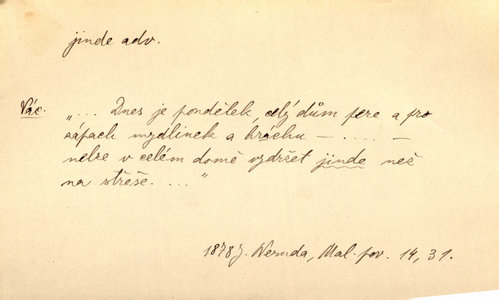 jinde adv.
Vác.
„ ... Dnes je pondělek, celý dům pere a pro
zápach mydlinek a hrachu — .... —
nelze v celém domě vydržet jinde než
na střeše. ..."
1878 J. Neruda, Mal. pov. 14, 31.